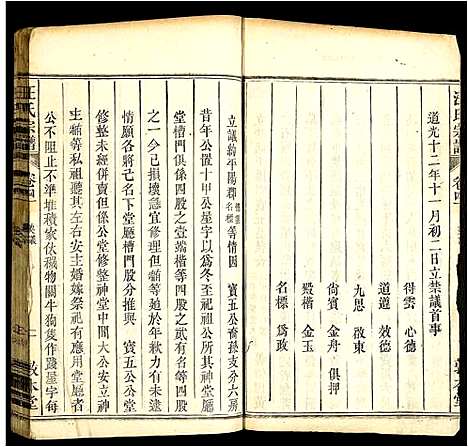 汪氏宗譜
卷四
道光十二年十一月初二日立禁議首事
得雲 心德
道道 效德
九思 啟東
尚賓 金舟 俱押
殿楷 金玉
名標 為政
敦本堂
立議約平陽郡 等情因 寶五公裔孫支分六房
昔年公置十甲公星字以爲冬至祀祖公所其神堂
堂槽門俱係四股之壹端楷等四股之貳有名等四股
之一今已損壞急宜修理然而歷年於玆力有未逮
情願各將己名下堂層槽門四股分推與 寶五公
修整未經興工公堂修整神堂中間大公安立祖
主緒等私祖聽其左右安主婚嫁祭祀有應用堂層者
公不阻止不準堆積家伙穢物關牛狗隻作踐晏字每
汪氏宗譜
卷四
敦本堂